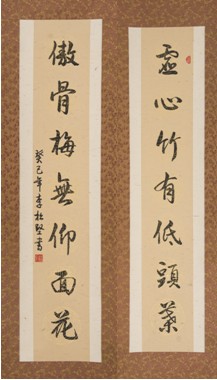 虛心竹有低頭葉
傲骨梅無仰面花
癸巳年李杜堅書